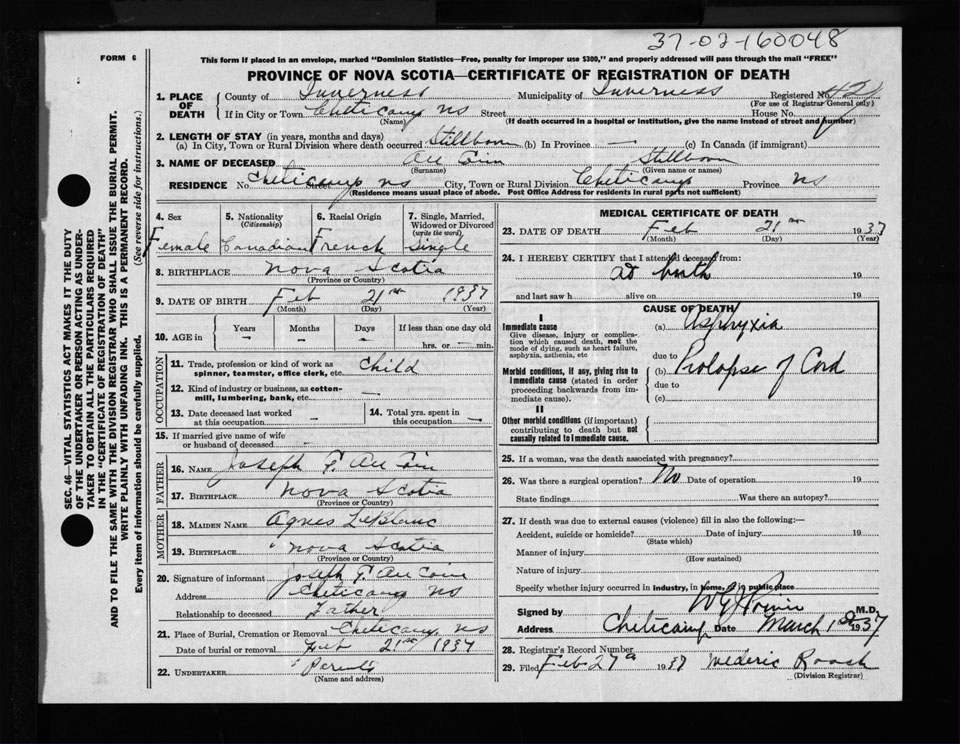 37-02-160048
FORM 6
This form if placed in an envelope, marked "Dominion Statistics—Free, penalty for improper use $300," and properly addressed will pass through the mail "FREE"
PROVINCE OF NOVA SCOTIA—CERTIFICATE OF REGISTRATION OF DEATH
1. PLACE OF DEATH
County of Inverness Municipality of Inverness Registered No.
(For use of Registrar General only)
If in City or Town Cheticamp NS Street House No.
(Name) (If death occurred in a hospital or institution, give the name instead of street and number)
2. LENGTH OF STAY (in years, months and days)
(a) In City, Town or Rural Division where death occurred Stillborn (b) In Province — (c) In Canada (if immigrant)
3. NAME OF DECEASED Au Coin Stillborn
(Surname) (Given name or names)
RESIDENCE No. Cheticamp NS Street City, Town or Rural Division Cheticamp Province NS
(Residence means usual place of abode. Post Office Address for residents in rural parts not sufficient)
4. Sex
Female
5. Nationality
(Citizenship)
Canadian
6. Racial Origin
French
7. Single, Married, Widowed or Divorced
(write the word)
Single
8. BIRTHPLACE Nova Scotia
(Province or Country)
9. DATE OF BIRTH Feb 21 1937
(Month) (Day) (Year)
10. AGE in Years Months Days If less than one day old
— — — hrs. or — min.
OCCUPATION
11. Trade, profession or kind of work as spinner, teamster, office clerk, etc. Child
12. Kind of industry or business, as cotton-mill, lumbering, bank, etc. —
13. Date deceased last worked at this occupation —
14. Total yrs. spent in this occupation —
15. If married give name of wife or husband of deceased —
FATHER
16. NAME Joseph F. Au Coin
17. BIRTHPLACE Nova Scotia
(Province or Country)
MOTHER
18. MAIDEN NAME Agnes LeBlanc
19. BIRTHPLACE " Nova Scotia
(Province or Country)
20. Signature of informant Joseph F. Au Coin
Address Cheticamp NS
Relationship to deceased Father
21. Place of Burial, Cremation or Removal Cheticamp NS
Date of burial or removal Feb 21 1937
22. UNDERTAKER " Parents
(Name and address)
MEDICAL CERTIFICATE OF DEATH
23. DATE OF DEATH Feb 21 1937
(Month) (Day) (Year)
24. I HEREBY CERTIFY that I attended deceased from:
at birth 19
and last saw h alive on 19
CAUSE OF DEATH
I
Immediate cause
Give disease, injury or complication which caused death, not the mode of dying, such as heart failure, asphyxia, asthenia, etc
(a) Asphyxia
due to
Morbid conditions, if any, giving rise to immediate cause (stated in order proceeding backwards from immediate cause).
(b) Prolapse of Cord
due to
(c)
II
Other morbid conditions (if important) contributing to death but not causally related to immediate cause.
25. If a woman, was the death associated with pregnancy?
26. Was there a surgical operation? No Date of operation 19
State findings Was there an autopsy?
27. If death was due to external causes (violence) fill in also the following:—
Accident, suicide or homicide? Date of injury 19
(State which)
Manner of injury
(How sustained)
Nature of injury
Specify whether injury occurred in industry, in home, or in public place
Signed by M.D.
Address Cheticamp Date March 1937
28. Registrar's Record Number
29. Filed Feb 27 1937 Wederic Roach
(Division Registrar)
SEC. 46—VITAL STATISTICS ACT MAKES IT THE DUTY
OF THE UNDERTAKER OR PERSON ACTING AS UNDER-
TAKER TO OBTAIN ALL THE PARTICULARS REQUIRED
IN THE "CERTIFICATE OF REGISTRATION OF DEATH"
AND TO FILE THE SAME WITH THE DIVISION REGISTRAR WHO SHALL ISSUE THE BURIAL PERMIT.
WRITE PLAINLY WITH UNFADING INK. THIS IS A PERMANENT RECORD.
Every item of information should be carefully supplied. (See reverse side for instructions.)